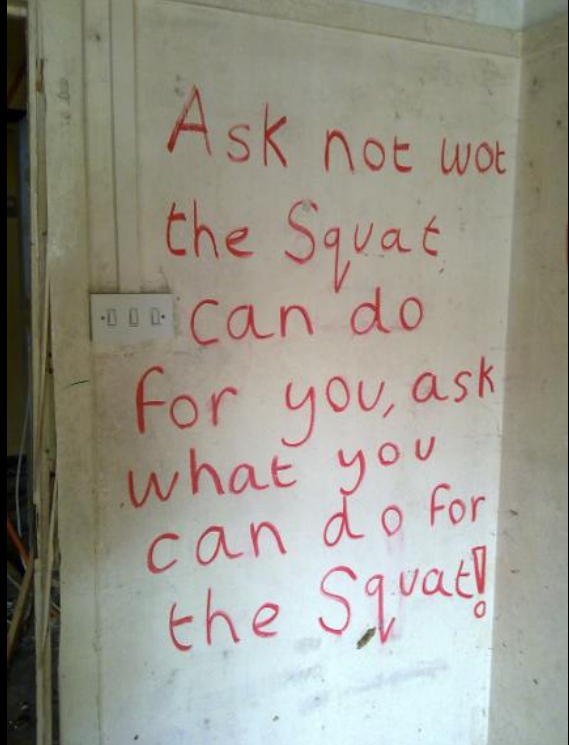 Ask not wot
the Squat
can do
for you, ask
what you
can do for
the Squat!